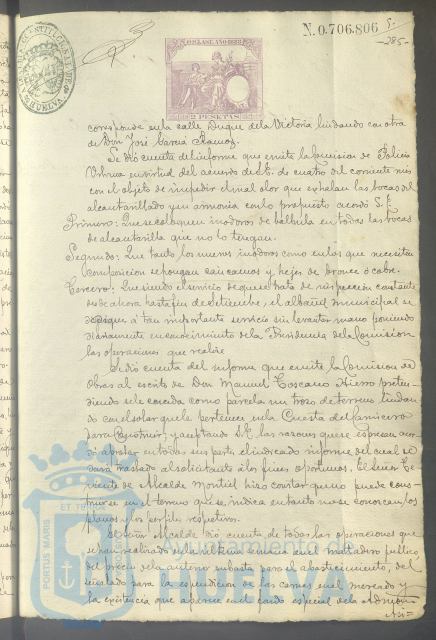 N. 0.706.806
5.
-285-
AYUNTAMIENTO CONSTITUCIONAL DE HUELVA
10ª CLASE. AÑO 1888
2 PESETAS
corresponde en la calle Duque de la Victoria lindando con otra
de Don José Garcia Ramos.
Se dió cuenta del informe que emite la Comision de Policia
Urbana en virtud del acuerdo de S.E. de cuatro del corriente mes
con el objeto de impedir el mal olor que exhalan las bocas del
alcantarillado y en armonia con lo propuesto acordó S.E.
Primero: Que se coloquen inodoros de bálbula en todas las bocas
de alcantarilla que no lo tengan.
Segundo: Que tanto los nuevos inodoros como en los que necesiten
composicion se pongan cancamos y hejes de bronce ó cobre.
Tercero: Que siendo el servicio de que se trata de inspección constante
desde ahora hasta fin de Setiembre, el albañil municipal se
dedique á tan importante servicio sin levantar mano poniendo
diariamente en conocimiento de la Presidencia de la Comisión
las operaciones que realice.
Se dió cuenta del informe que emite la Comision de
Obras al escrito de Don Manuel Toscano Hierro preten-
diendo se le conceda como parcela un trozo de terreno lindan-
do con el solar que le pertenece en la Cuesta del Carnicero
para construir, y aceptando S.E. las razones que se espresan acor-
dó aprobar en todas sus partes el indicado informe del cual se
dará traslado al solicitante á los fines oportunos. El Señor Te-
niente de Alcalde Montiel hizo constar que no puede cons-
truirse en el terreno que se indica en tanto no se conozcan los
planos y los perfiles respectivos.
El Señor Alcalde dió cuenta de todas las operaciones que
se han realizado en la última semana en el matadero publico
del precio de la anterior subasta para el abastecimiento, del
señalado para la espendicion de las carnes en el mercado y
la existencia que aparece en el caudo especial de la Adminis-
PORTUS MARIS
ET TE
Ayuntamiento de
HUELVA